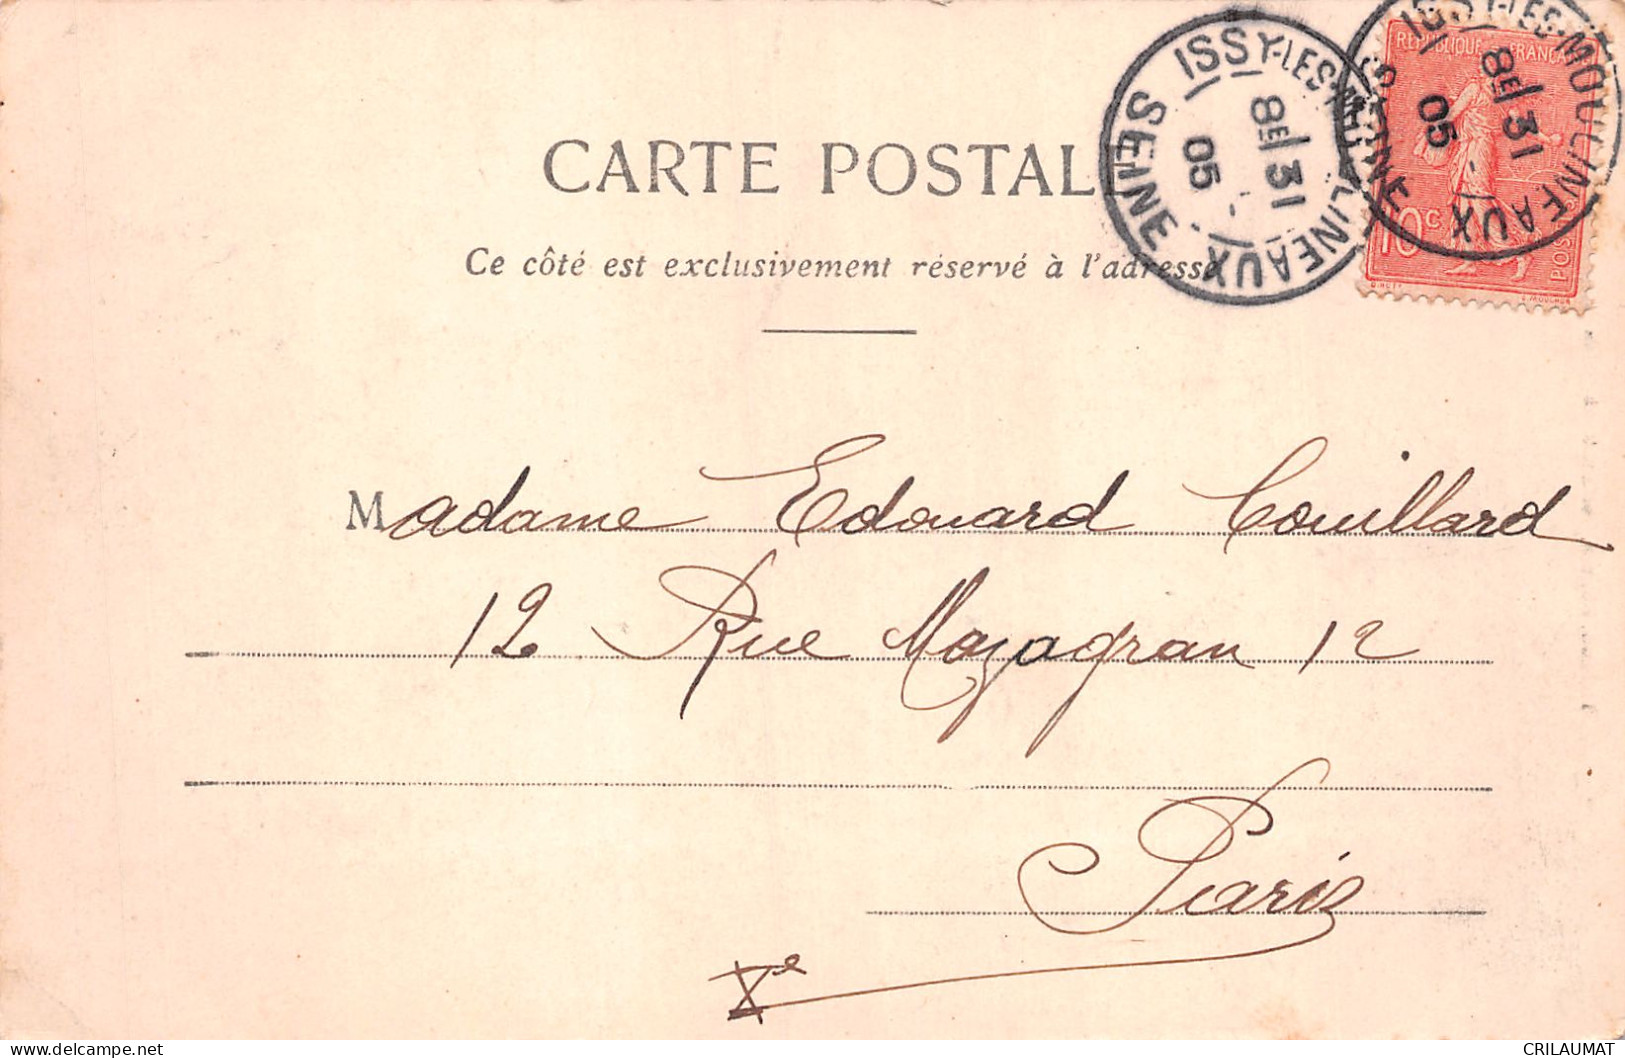 CARTE POSTALE
Ce côté est exclusivement réservé à l'adresse
ISSY-LES-MOULINEAUX
8E 31
05
SEINE
ISSY-LES-MOULINEAUX
8E 31
05
SEINE
REPUBLIQUE FRANÇAISE
10c
POSTES
O.ROTY
E.MOUCHON
Madame Edouard Couillard
12 Rue Mazagran 12
Paris
Xe
CRILAUMAT